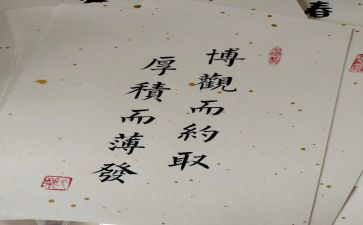 博觀而約取
厚積而薄發
春